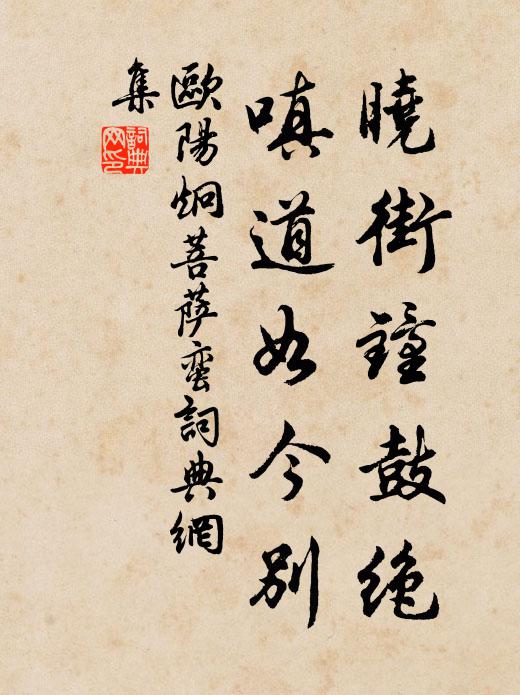 曉街鐘鼓絶
嗔道如今別
歐陽炯菩薩蠻詞典網
集
詞典网印